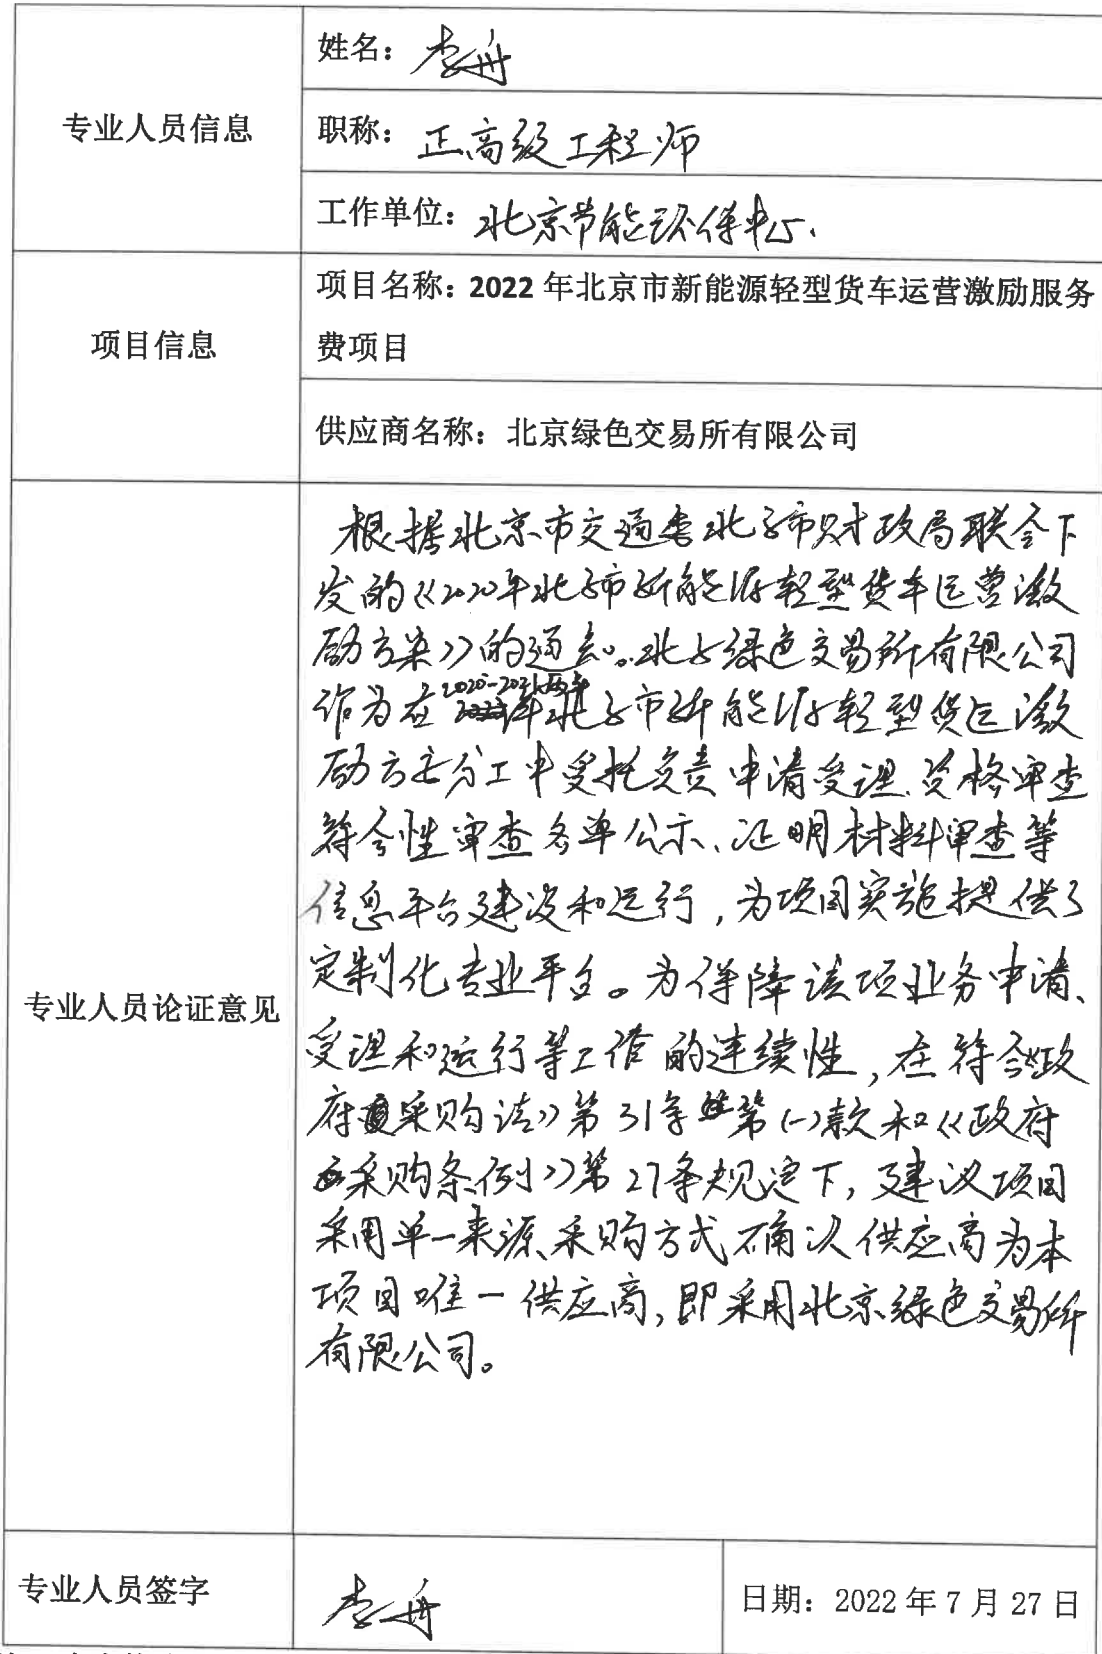 专业人员信息
姓名：李舟
职称：正高级工程师
工作单位：北京节能环保中心.
项目信息
项目名称：2022 年北京市新能源轻型货车运营激励服务
费项目
供应商名称：北京绿色交易所有限公司
专业人员论证意见
根据北京市交通委北京市财政局联合下
发的《2020年北京市新能源轻型货车运营激
励方案》的通知。北京绿色交易所有限公司
作为在2020-2021两年北京市新能源轻型货运激
励方案分工中受托负责申请受理、资格审查
符合性审查名单公示、证明材料审查等
信息平台建设和运行，为项目实施提供了
定制化专业平台。为保障该项业务申请、
受理和运行等工作的连续性，在符合《政
府采购法》第31条第(一)款和《政府
采购条例》第27条规定下，建议项目
采用单一来源采购方式确认供应商为本
项目唯一供应商，即采用北京绿色交易所
有限公司。
专业人员签字
李舟
日期：2022 年 7 月 27 日